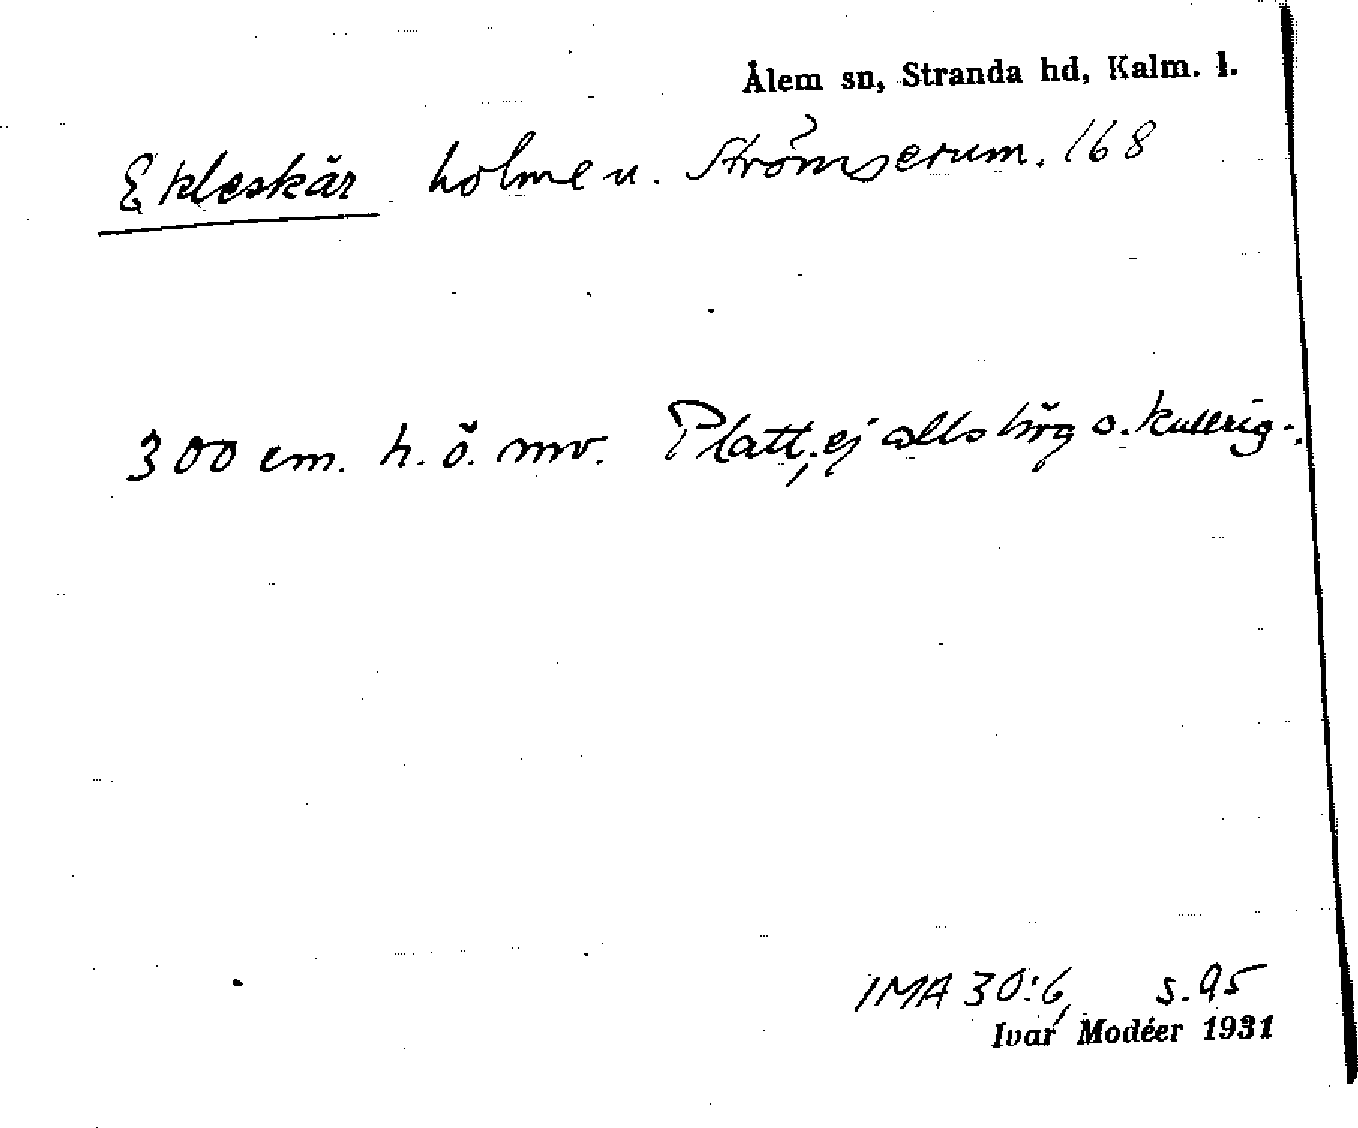 Ålem sn, Stranda hd, Kalm. l.
Ekleskär holme u. Strömserum. 168
300 cm. h. ö. mv. Platt, ej alls hög o. kullrig.
IMA 30:6, s. 95
Ivar Modéer 1931